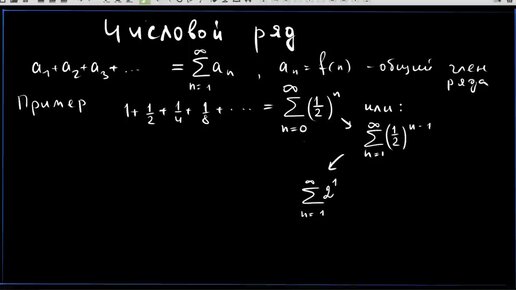 Числовой ряд
a₁+a₂+a₃+... = ∑_{n=1}^{∞} aₙ , aₙ = f(n) - общий член ряда
Пример 1+1/2+1/4+1/8+... = ∑_{n=0}^{∞} (1/2)^n или:
∑_{n=1}^{∞} (1/2)^{n-1}
∑_{n=1}^{∞} 2^1